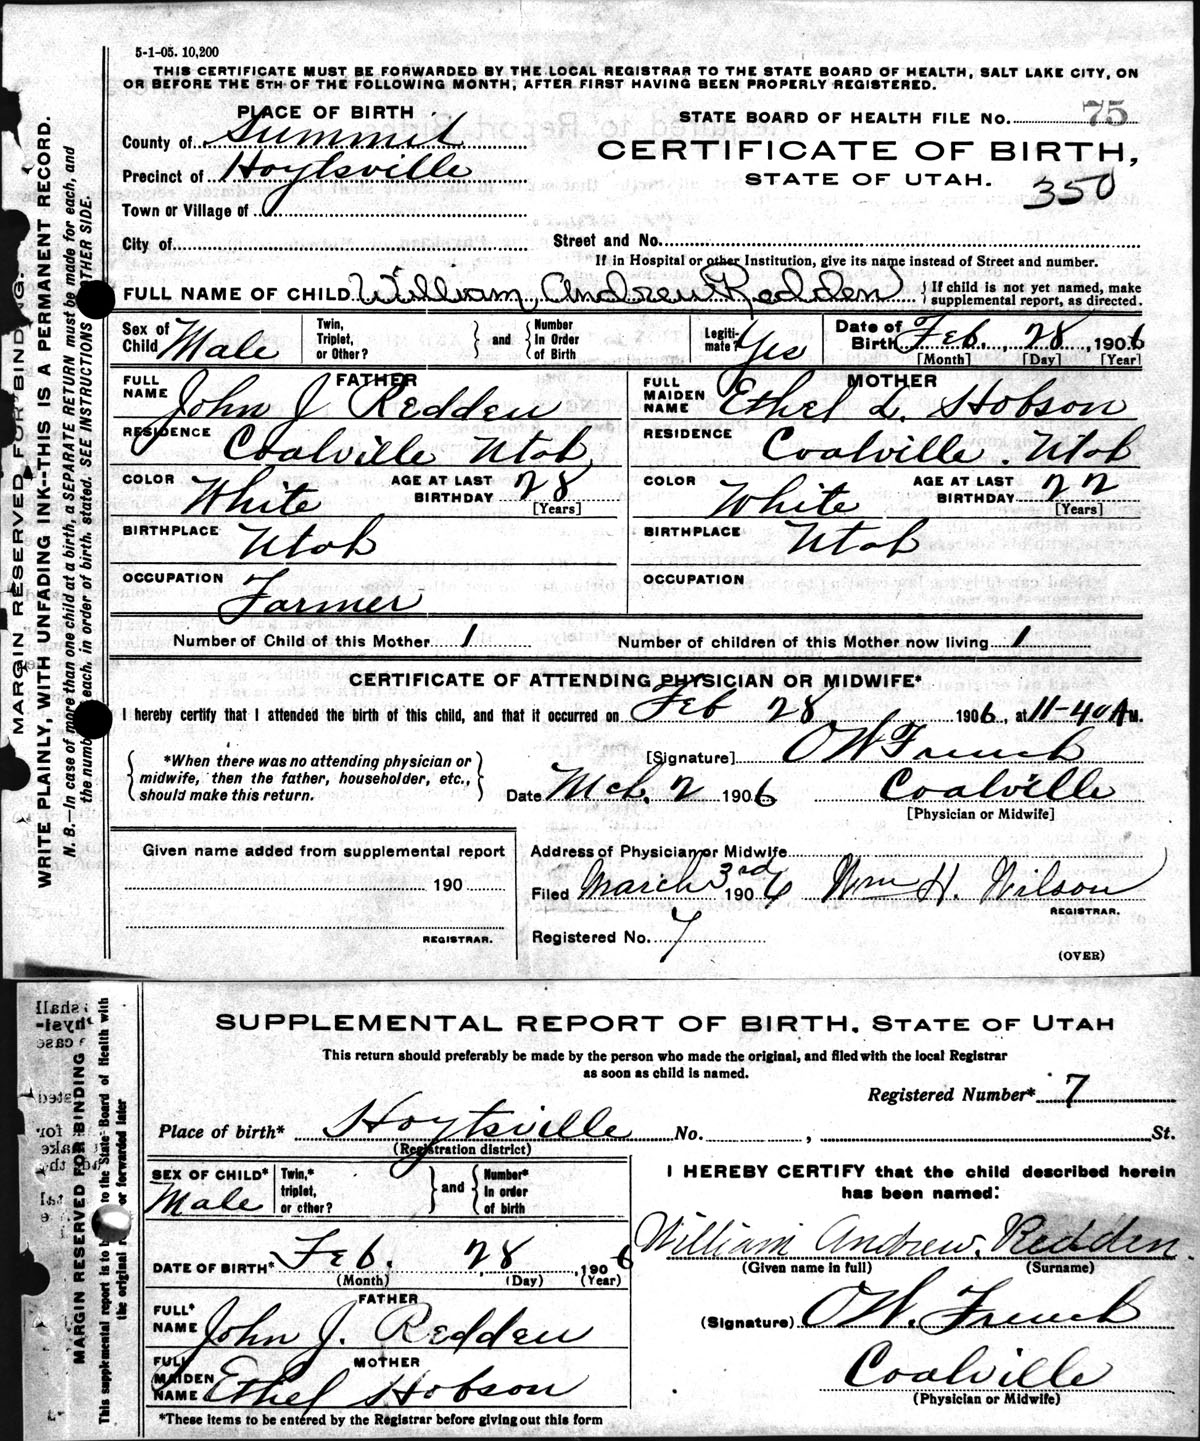 5-1-05. 10,200
THIS CERTIFICATE MUST BE FORWARDED BY THE LOCAL REGISTRAR TO THE STATE BOARD OF HEALTH, SALT LAKE CITY, ON
OR BEFORE THE 5TH OF THE FOLLOWING MONTH, AFTER FIRST HAVING BEEN PROPERLY REGISTERED.
PLACE OF BIRTH
STATE BOARD OF HEALTH FILE NO. 75
County of Summit
CERTIFICATE OF BIRTH,
Precinct of Hoytsville
STATE OF UTAH.
350
Town or Village of
City of
Street and No.
If in Hospital or other Institution, give its name instead of Street and number.
FULL NAME OF CHILD William Andrew Redden { If child is not yet named, make supplemental report, as directed.
Sex of Child Male
Twin, Triplet, or Other? } and { Number in Order of Birth
Legiti-mate? Yes
Date of Birth Feb. 28, 1906
[Month] [Day] [Year]
FATHER
FULL NAME John J Redden
MOTHER
FULL MAIDEN NAME Ethel L. Hobson
RESIDENCE Coalville Utah
RESIDENCE Coalville. Utah
COLOR White AGE AT LAST BIRTHDAY 28 [Years]
COLOR White AGE AT LAST BIRTHDAY 22 [Years]
BIRTHPLACE Utah
BIRTHPLACE Utah
OCCUPATION Farmer
OCCUPATION
Number of Child of this Mother 1 Number of children of this Mother now living 1
CERTIFICATE OF ATTENDING PHYSICIAN OR MIDWIFE*
I hereby certify that I attended the birth of this child, and that it occurred on Feb 28 1906, at 11-40 A M.
{ *When there was no attending physician or
midwife, then the father, householder, etc.,
should make this return. }
[Signature] O W French
Date Mch. 2 1906 Coalville
[Physician or Midwife]
Given name added from supplemental report
190
REGISTRAR.
Address of Physician or Midwife
Filed March 3rd 1906 Wm H. Wilson
REGISTRAR.
Registered No. 7
(OVER)
MARGIN RESERVED FOR BINDING.
WRITE PLAINLY, WITH UNFADING INK--THIS IS A PERMANENT RECORD.
N. B.—In case of more than one child at a birth, a SEPARATE RETURN must be made for each, and
the number each, in order of birth, stated. SEE INSTRUCTIONS OTHER SIDE.
SUPPLEMENTAL REPORT OF BIRTH, STATE OF UTAH
This return should preferably be made by the person who made the original, and filed with the local Registrar
as soon as child is named.
Registered Number* 7
Place of birth* Hoytsville No. , St.
(Registration district)
SEX OF CHILD* Male
Twin,* triplet, or other? } and { Number* in order of birth
I HEREBY CERTIFY that the child described herein
has been named:
William Andrew. Redden.
(Given name in full) (Surname)
DATE OF BIRTH* Feb. 28, 1906
(Month) (Day) (Year)
FATHER
FULL* NAME John J. Redden
(Signature) O W. French
MOTHER
FULL MAIDEN NAME Ethel Hobson
Coalville
(Physician or Midwife)
*These items to be entered by the Registrar before giving out this form
MARGIN RESERVED FOR BINDING
This supplemental report is to b to the State Board of Health with
the original r or forwarded later